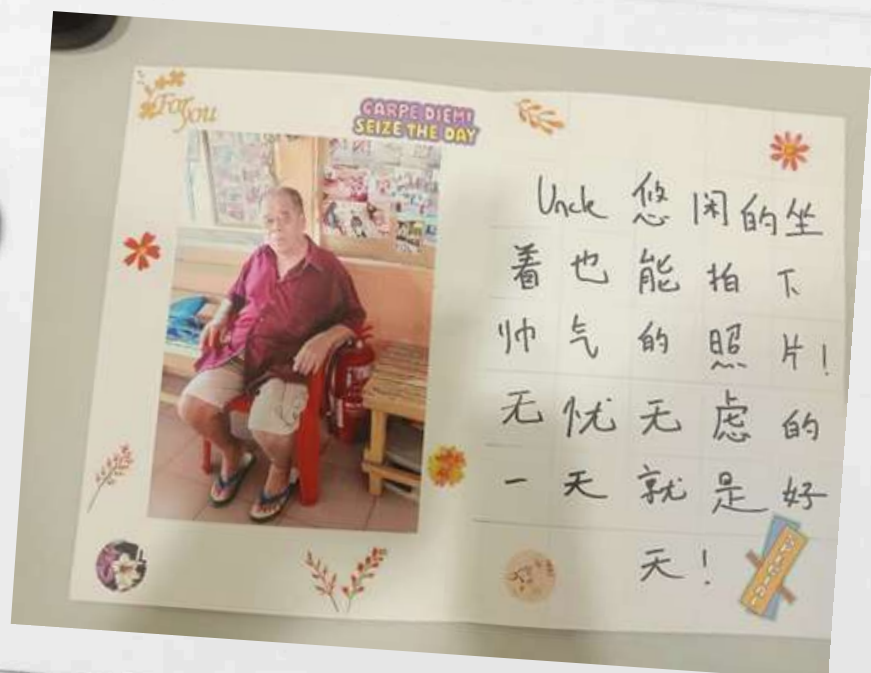 For you
CARPE DIEM!
SEIZE THE DAY
Uncle 悠闲的坐
着也能拍下
帅气的照片!
无忧无虑的
一天就是好
天!